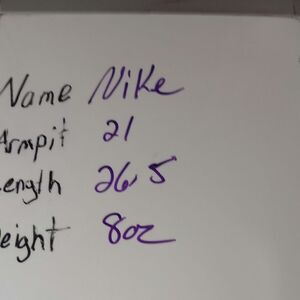 Name Nike
Armpit 21
ength 26.5
eight 8oz